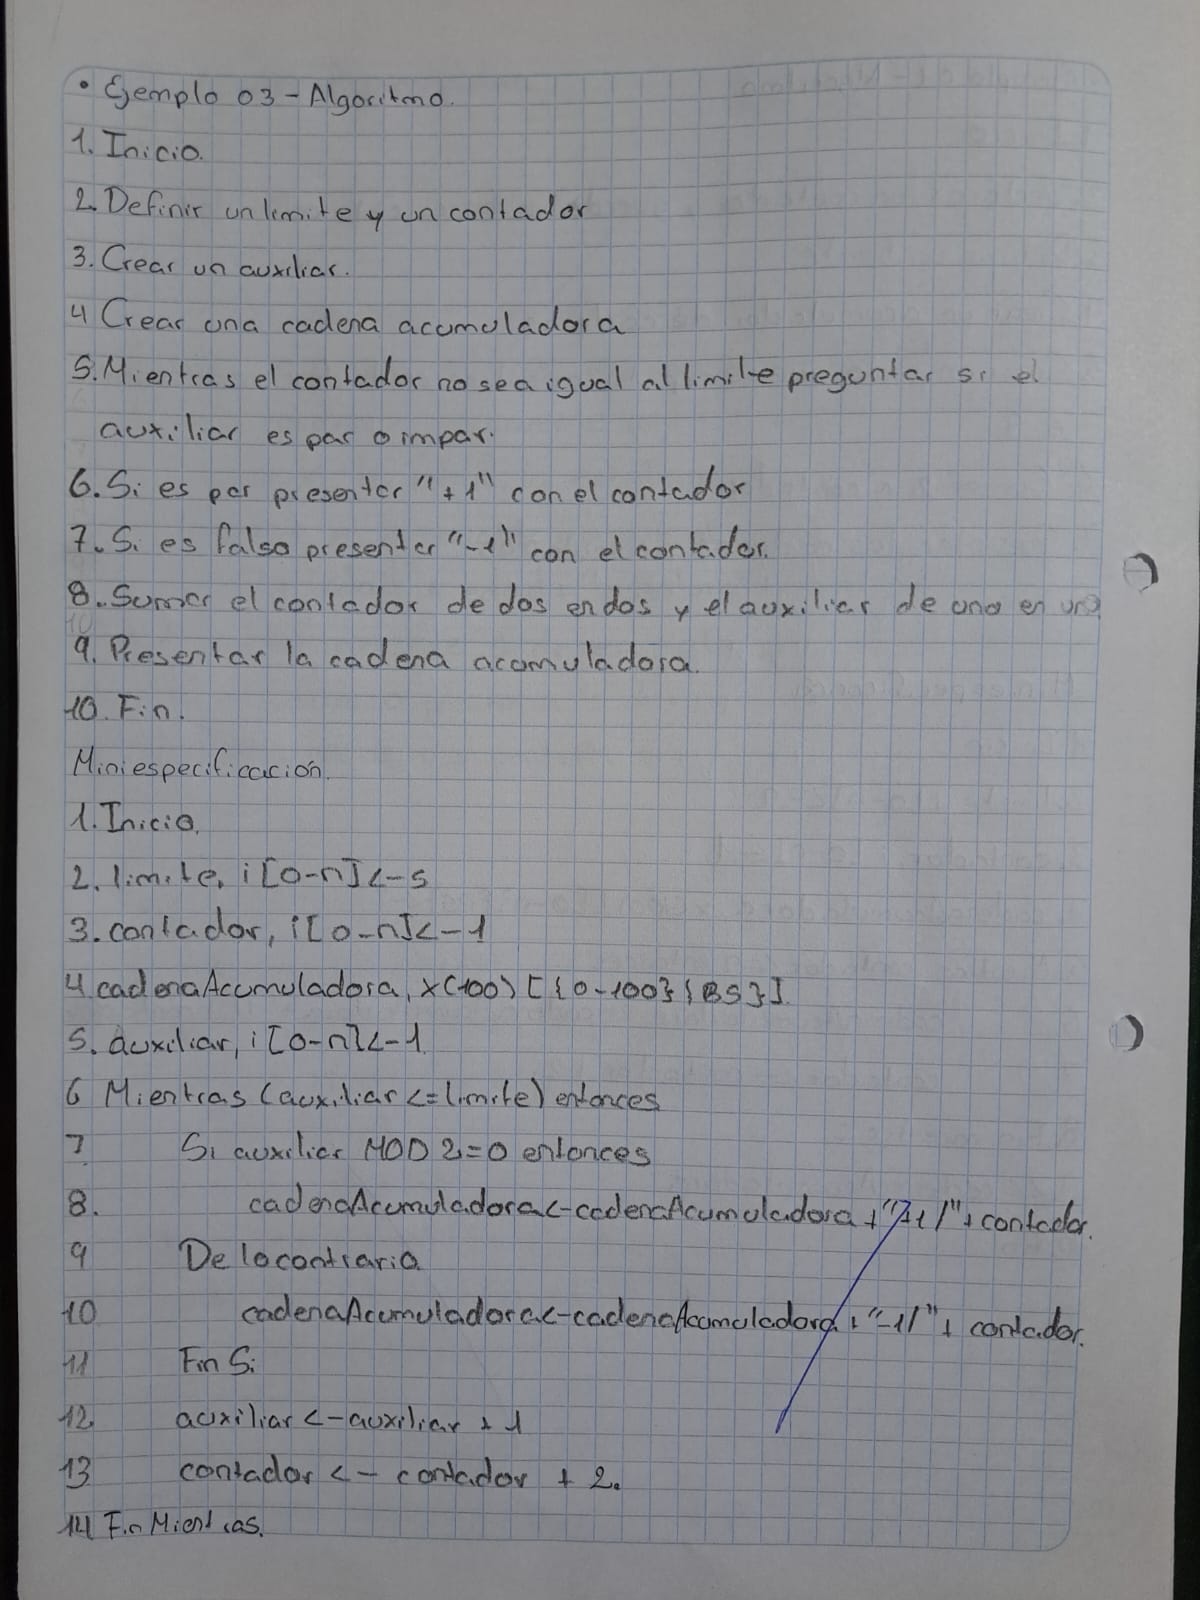 • Ejemplo 03 - Algoritmo.
1. Inicio.
2. Definir un limite y un contador
3. Crear un auxiliar.
4 Crear una cadena acumuladora
5. Mientras el contador no sea igual al limite preguntar si el
auxiliar es par o impar.
6. Si es par presentar "+1" con el contador
7. Si es falso presentar "-1" con el contador.
8. Sumar el contador de dos en dos y el auxiliar de uno en uno
9. Presentar la cadena acumuladora.
10. Fin.
Miniespecificación.
1. Inicio.
2. limite, i [0-n] <- 5
3. contador, i [0-n] <- 1
4. cadenaAcumuladora, x(100) [{0-100}{BS}].
5. auxiliar, i [0-n] <- 1.
6 Mientras (auxiliar <= limite) entonces
7. Si auxiliar MOD 2 = 0 entonces
8. cadenaAcumuladora <- cadenaAcumuladora + "+1/" + contador.
9 De lo contrario
10 cadenaAcumuladora <- cadenaAcumuladora + "-1/" + contador.
11 Fin Si
12. auxiliar <- auxiliar + 1
13 contador <- contador + 2.
14 Fin Mientras.